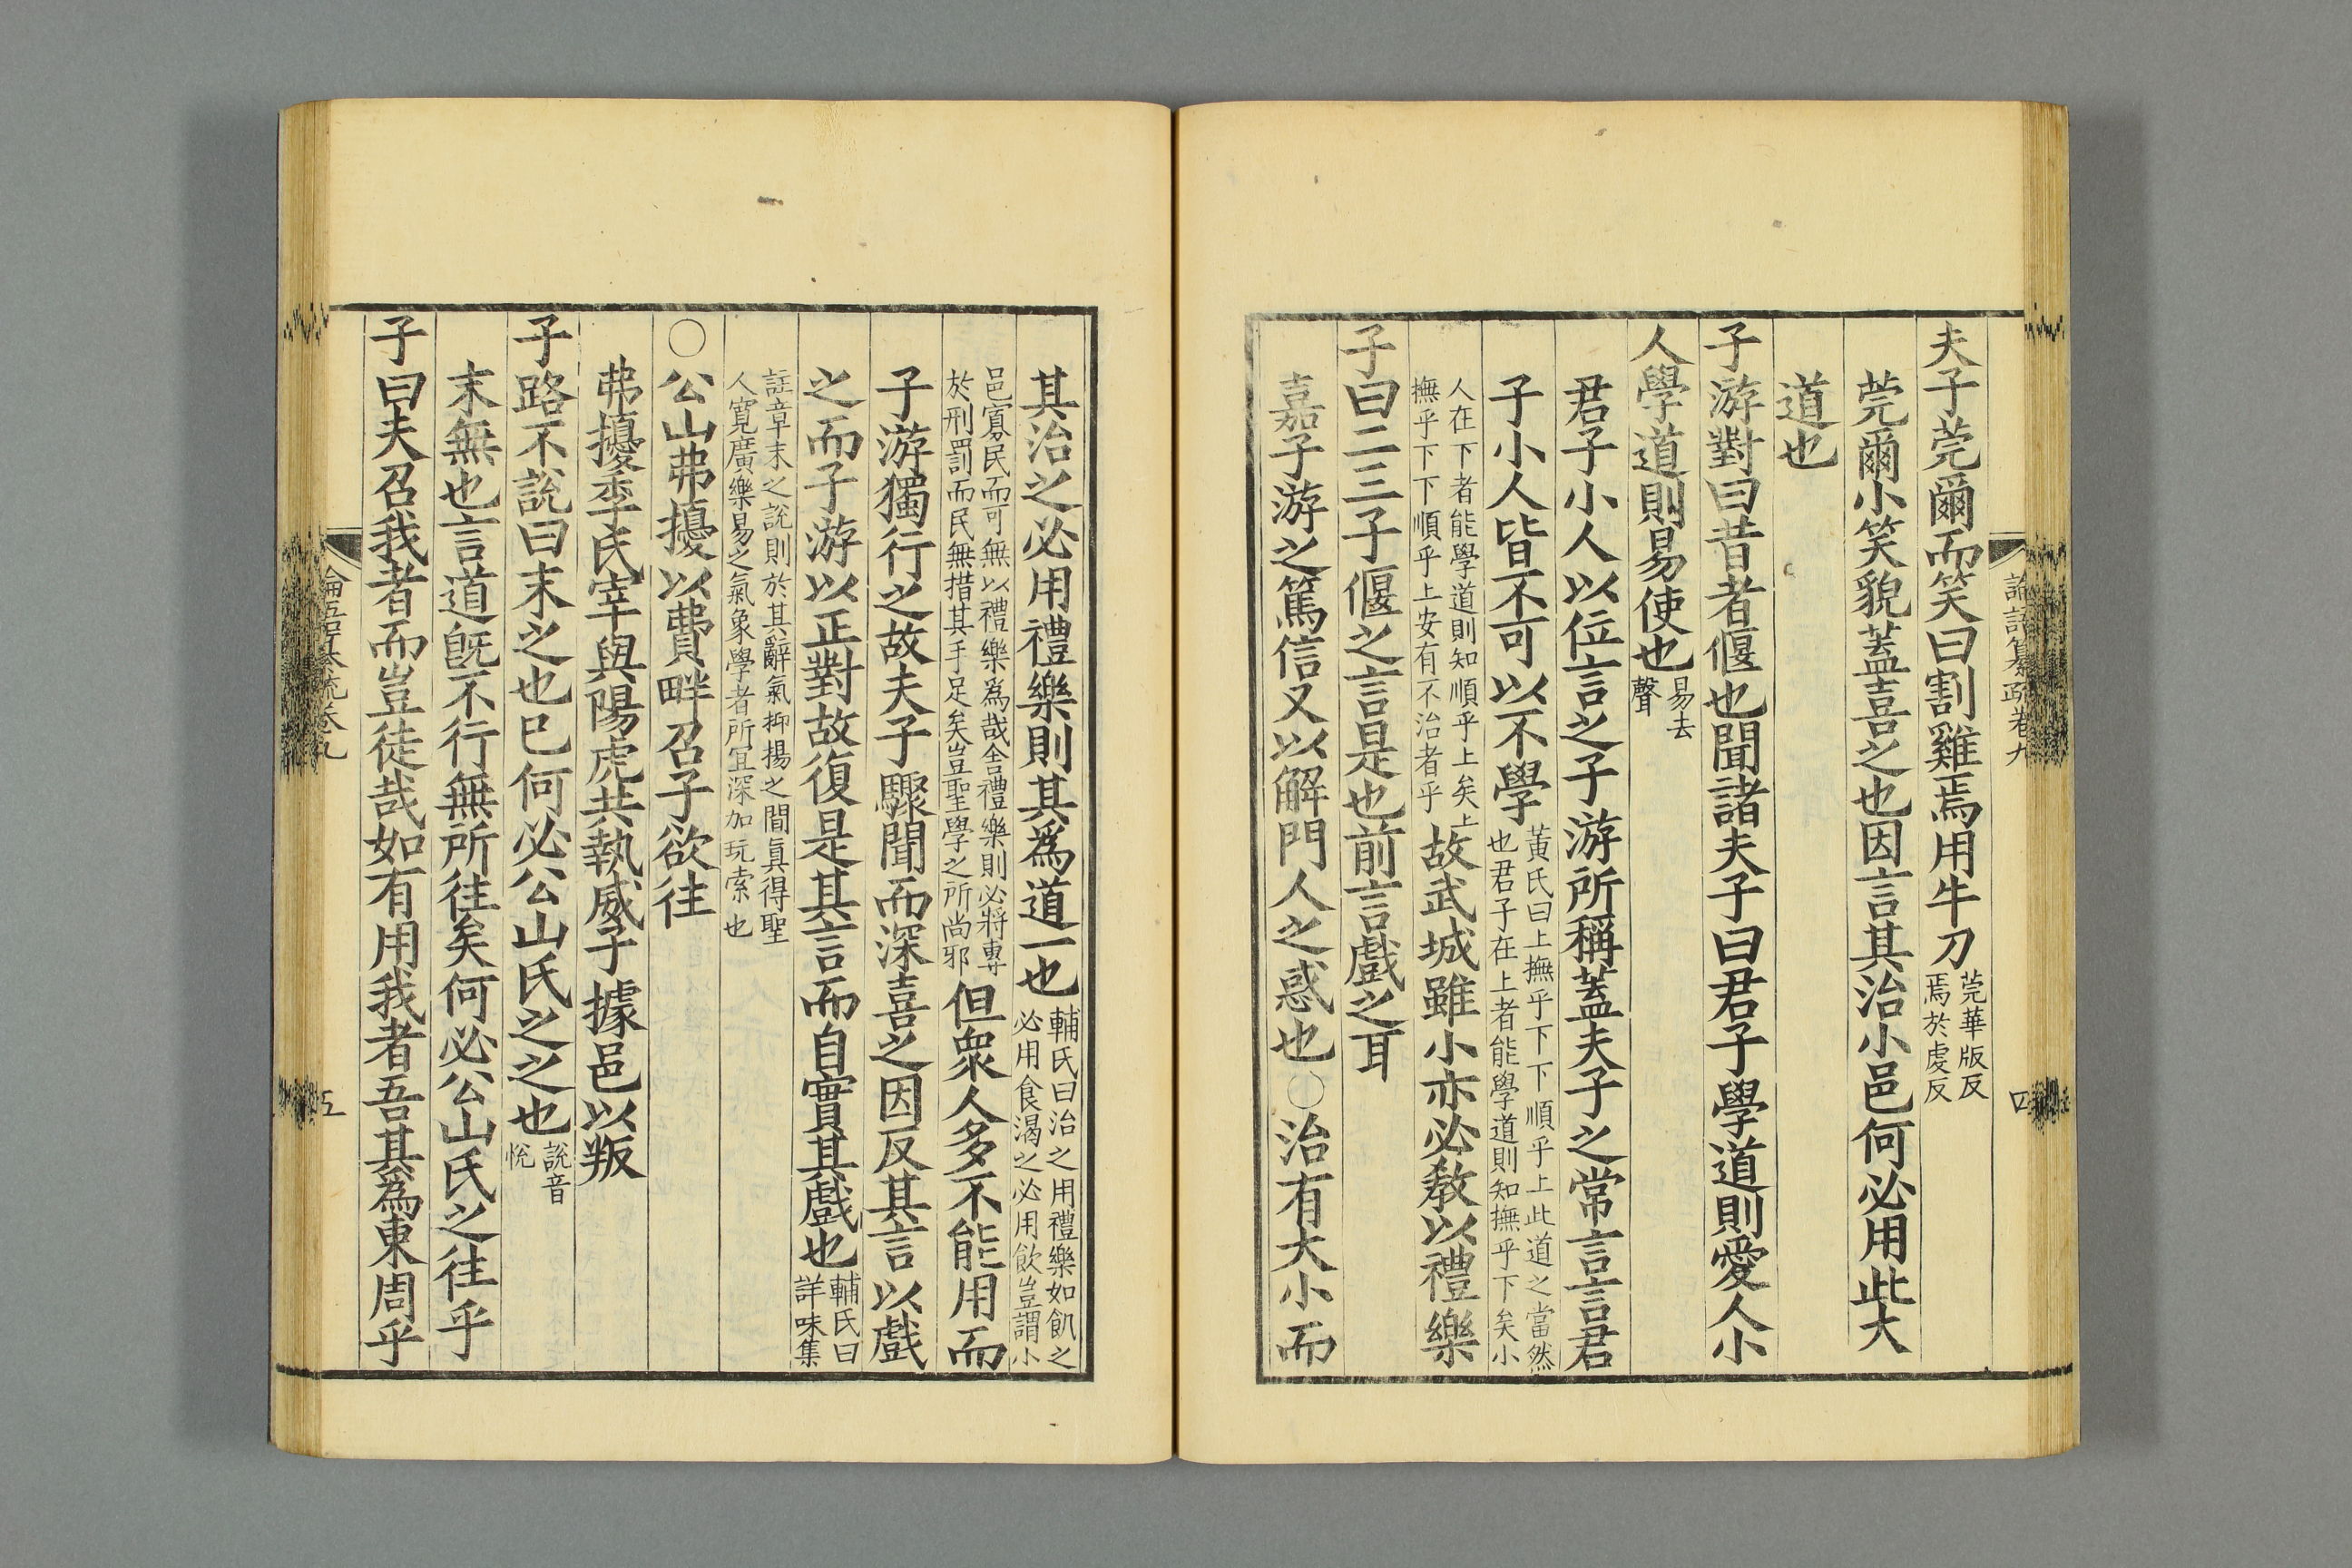 論語纂疏卷九
四
夫子莞爾而笑曰割雞焉用牛刀莞華版反
焉於虔反
莞爾小笑貌蓋喜之也因言其治小邑何必用此大
道也
子游對曰昔者偃也聞諸夫子曰君子學道則愛人小
人學道則易使也易去
聲
君子小人以位言之子游所稱蓋夫子之常言言君
子小人皆不可以不學黃氏曰上撫乎下下順乎上此道之當然
也君子在上者能學道則知撫乎下矣小
人在下者能學道則知順乎上矣上
撫乎下下順乎上安有不治者乎故武城雖小亦必敎以禮樂
子曰二三子偃之言是也前言戲之耳
嘉子游之篤信又以解門人之惑也○治有大小而
其治之必用禮樂則其爲道一也輔氏曰治之用禮樂如飢之
必用食渴之必用飮豈謂小
邑寡民而可無以禮樂爲哉舍禮樂則必將專
於刑罰而民無措其手足矣豈聖學之所尚邪但衆人多不能用而
子游獨行之故夫子驟聞而深喜之因反其言以戲
之而子游以正對故復是其言而自實其戲也輔氏曰
詳味集
註章末之說則於其辭氣抑揚之間眞得聖
人寬廣樂易之氣象學者所宜深加玩索也
○公山弗擾以費畔召子欲往
弗擾季氏宰與陽虎共執威子據邑以叛
子路不說曰末之也已何必公山氏之之也說音
悅
末無也言道旣不行無所往矣何必公山氏之往乎
子曰夫召我者而豈徒哉如有用我者吾其爲東周乎
論語纂疏卷九
五